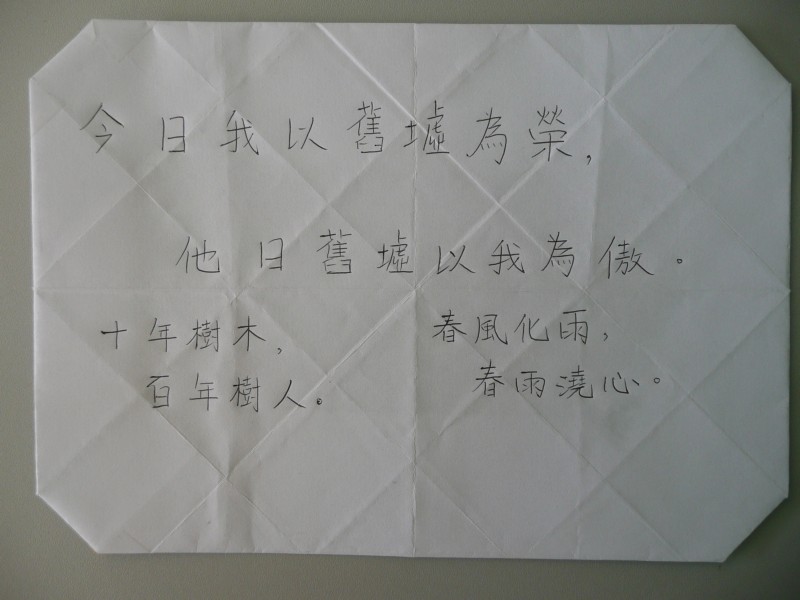 今日我以舊墟為榮,
他日舊墟以我為傲。
十年樹木,
百年樹人。
春風化雨,
春雨澆心。